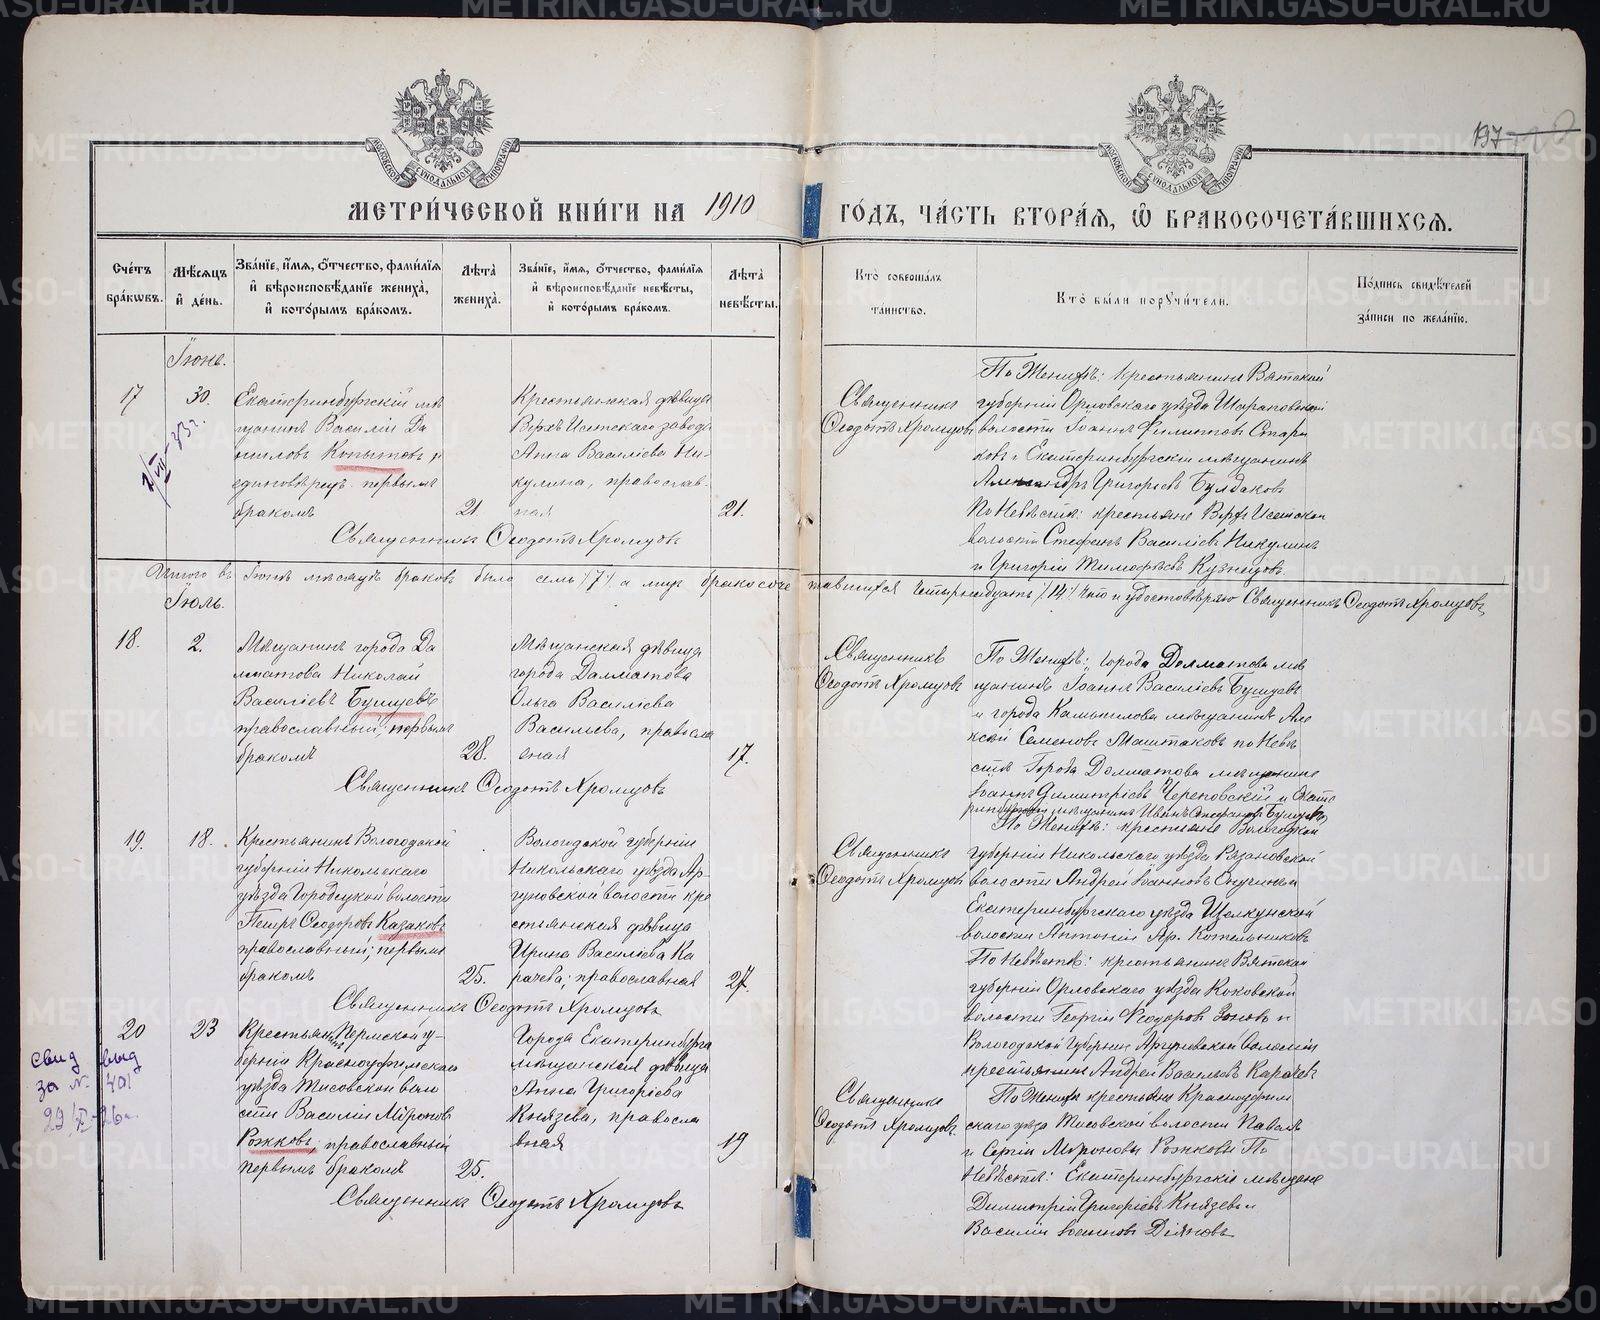 МЕТРИ́ЧЕСКОЙ КНИ́ГИ НА 1910 ГО́ДЪ, ЧА́СТЬ ВТОРА́Я, Ѡ БРАКОСОЧЕТА́ВШИХСЯ.
197
МОСКОВСКОЙ СѴНОДАЛЬНОЙ ТИПОГРАФІИ
МОСКОВСКОЙ СѴНОДАЛЬНОЙ ТИПОГРАФІИ
Сче́тъ бра́кѡвъ.
Мѣсяцъ и де́нь.
Зва́нїе, и́мя, ѻ́тчество, фами́лїя и вѣроисповѣ́данїе жениха̀, и кото́рымъ бра́комъ.
Лѣта̀ жениха̀.
Зва́нїе, и́мя, ѻ́тчество, фами́лїя и вѣроисповѣ́данїе невѣсты, и кото́рымъ бра́комъ.
Лѣта̀ невѣсты.
Кто̀ соверша́лъ та́инство.
Кто̀ бы́ли порꙋчи́тели.
По́дпись свидѣ́телей за́писи по жела́нїю.
Іюнь.
17
30.
Екатеринбургскій мѣ
щанинъ Василій Да
ниловъ Копытовъ,
единовѣрецъ первымъ
бракомъ
21.
Крестьянская дѣвица
Верхъ Исетскаго завода
Анна Василіева Ни-
кулина, православ-
ная
21.
Священникъ
Ѳеодотъ Хромцовъ
По Женихѣ: крестьянинъ Вятской
губерніи Орловскаго уѣзда
волости Іоаннъ Филиповъ Стари
ковъ и Екатеринбургскій мѣщанинъ
Александръ Григорьевъ Булдаковъ
По Невѣстѣ: крестьяне Верхъ Исетской
волости Стефанъ Василіевъ Никулинъ
и Григорій Тимофѣевъ Кузнецовъ
Священникъ Ѳеодотъ Хромцовъ
Итого въ Іюнѣ мѣсяцѣ браковъ было семь /7/ а лицъ бракосоче тавшихся четырнадцать /14/ что и удостовѣряю Священникъ Ѳеодотъ Хромцовъ
Іюль.
18.
2.
Мѣщанинъ города Да
лматова Николай
Василіевъ Бушуевъ
православный, первымъ
бракомъ
28.
Мѣщанская дѣвица
города Далматова
Ольга Василіева
Васильева, правосла
вная
17.
Священникъ
Ѳеодотъ Хромцовъ
По Женихѣ: города Долматова мѣ
щанинъ Іоаннъ Василіевъ Бушуевъ
и города Камышлова мѣщанинъ Але
ксѣй Семеновъ Маштаковъ по Невѣ
стѣ Города Долматова мѣщанине
Іоаннъ Димитріевъ Череповскій и Екате
ринбургскій мѣщанинъ Иванъ Бушуевъ
Священникъ Ѳеодотъ Хромцовъ
19.
18.
Крестьянинъ Вологодской
губерніи Никольскаго
уѣзда Городецкой волости
Петръ Ѳеодоровъ Казаковъ
православный; первымъ
бракомъ
25.
Вологодской губерніи
Никольскаго уѣзда Ар
гуновской волости кре
стьянская дѣвица
Ирина Василіева Ка
рачева; православная
27.
Священникъ
Ѳеодотъ Хромцовъ
По Женихѣ: крестьяне Вологодской
губерніи Никольскаго уѣзда Рязановской
волости Андрей Іоанновъ
Екатеринбургскаго уѣзда Щелкунской
волости Антоній Котельниковъ
По Невѣстѣ: крестьянинъ Вятской
губерніи Орловскаго уѣзда Коковской
волости Георгій Ѳеодоровъ Зоновъ и
Вологодской Губерніи Аргуновской волости
крестьянинъ Андрей Васильевъ Карачевъ
Священникъ Ѳеодотъ Хромцовъ
20
23
Крестьянинъ Пермской гу-
берніи Красноуфимскаго
уѣзда Тисовской воло
сти Василій Мѵроновъ
Рожковъ, православный
первымъ бракомъ
25.
Города Екатеринбурга
мѣщанская дѣвица
Анна Григоріева
Князева, правосла
вная
19
Священникъ
Ѳеодотъ Хромцовъ.
По Женихѣ крестьяне Красноуфим
скаго уѣзда Тисовской волости Павелъ
и Сергій Мѵроновы Рожковы По
Невѣстѣ: Екатеринбургскіе мѣщане
Димитрій Григоріевъ Князевъ и
Василій Іоанновъ Деяновъ
Священникъ Ѳеодотъ Хромцовъ
свид выд
за № 401